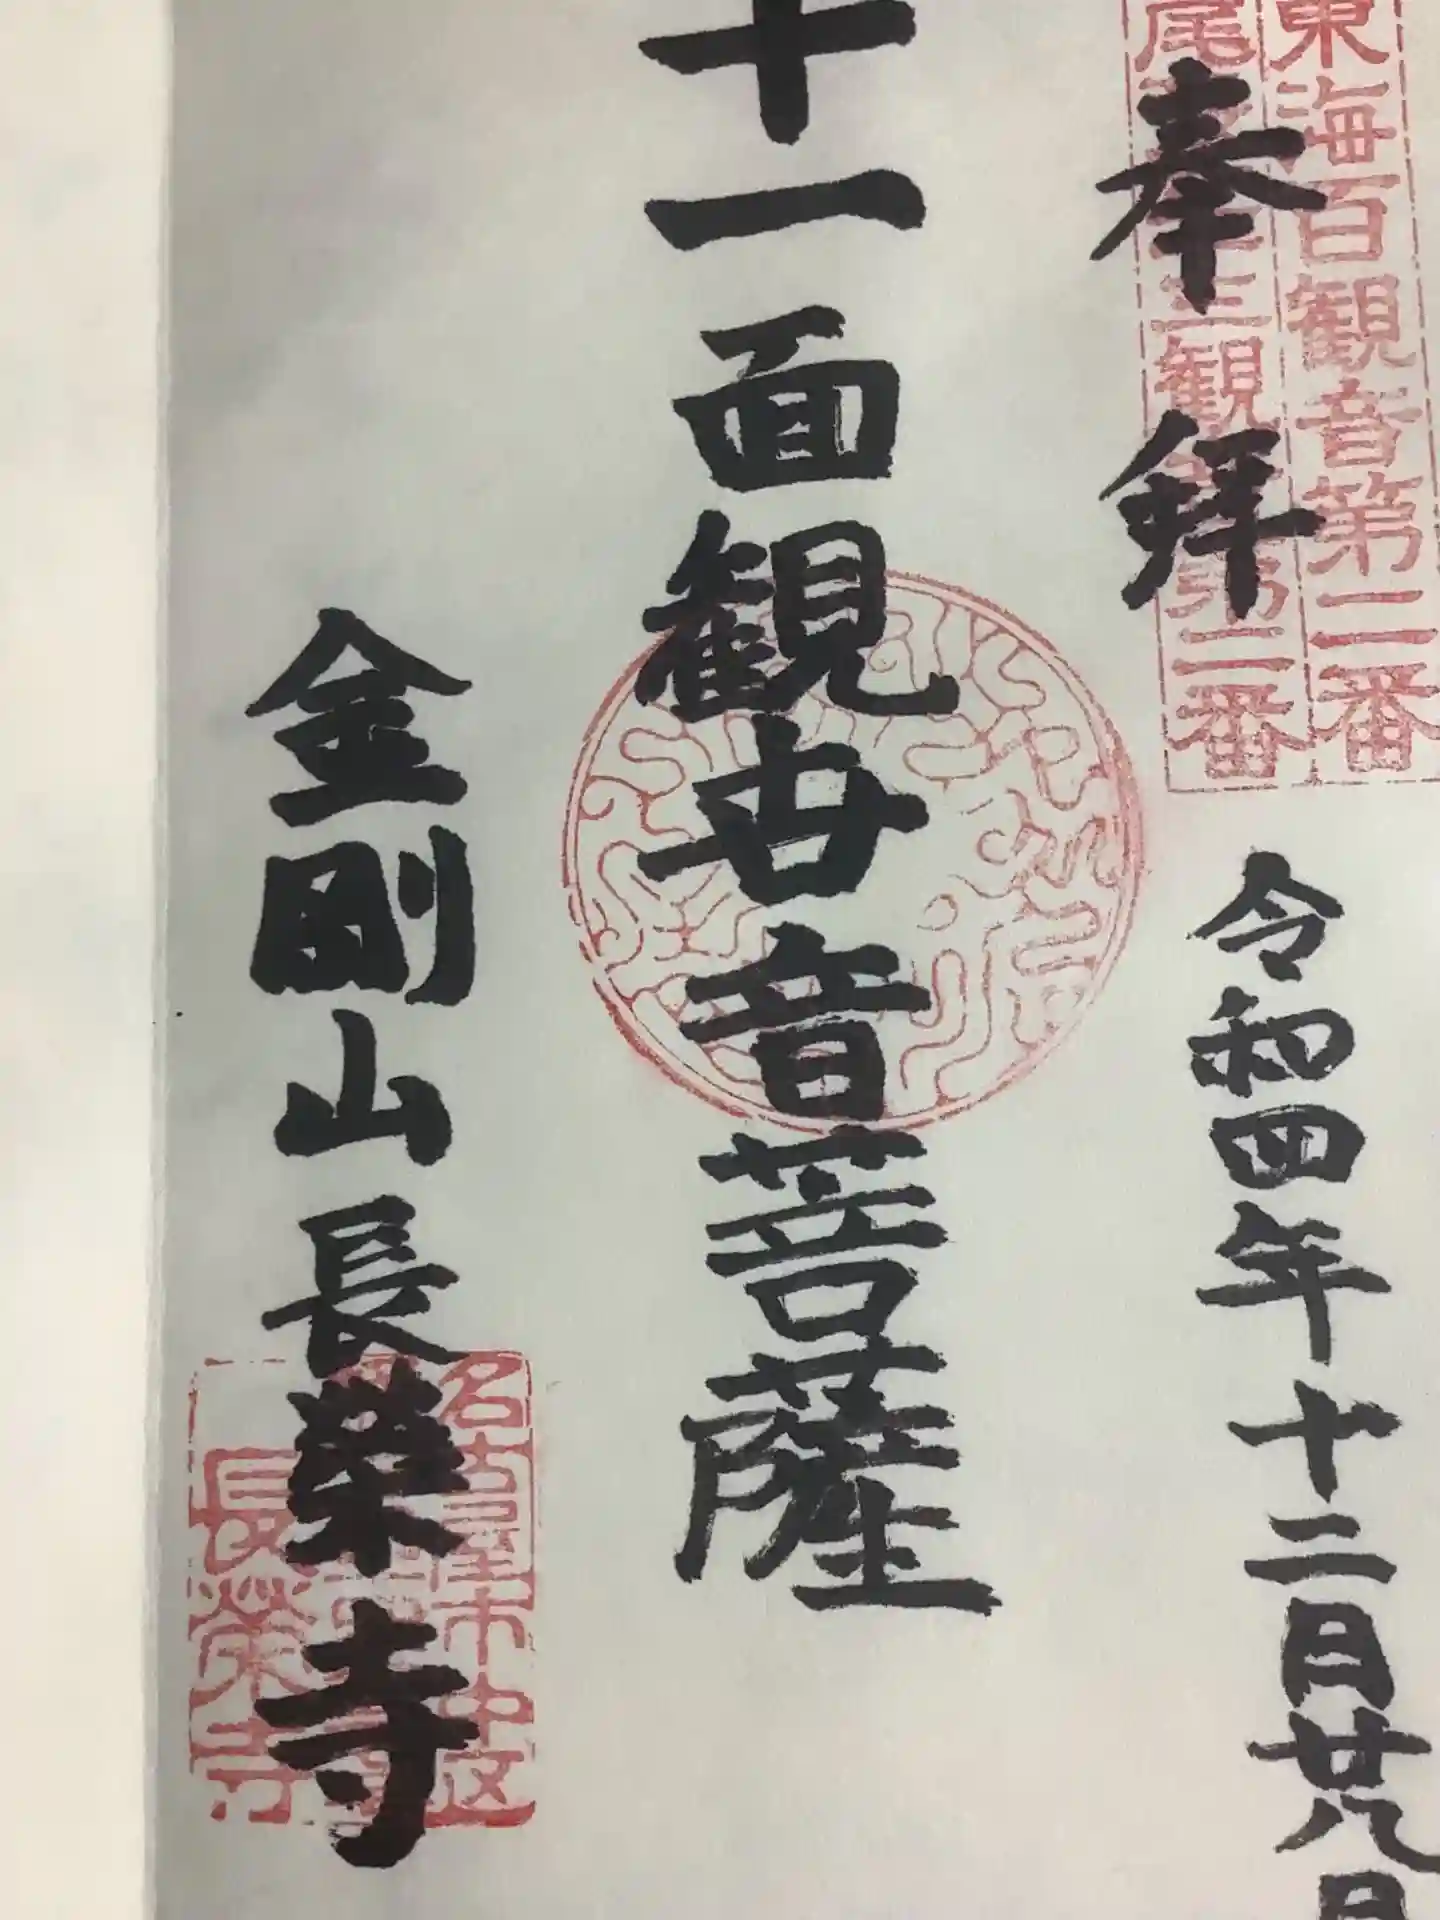 東海百観音第二番
尾
三観
第二番
奉拝
令和四年十二月廿八日
十一面観世音菩薩
金剛山長榮寺
名古屋市中区
長榮寺